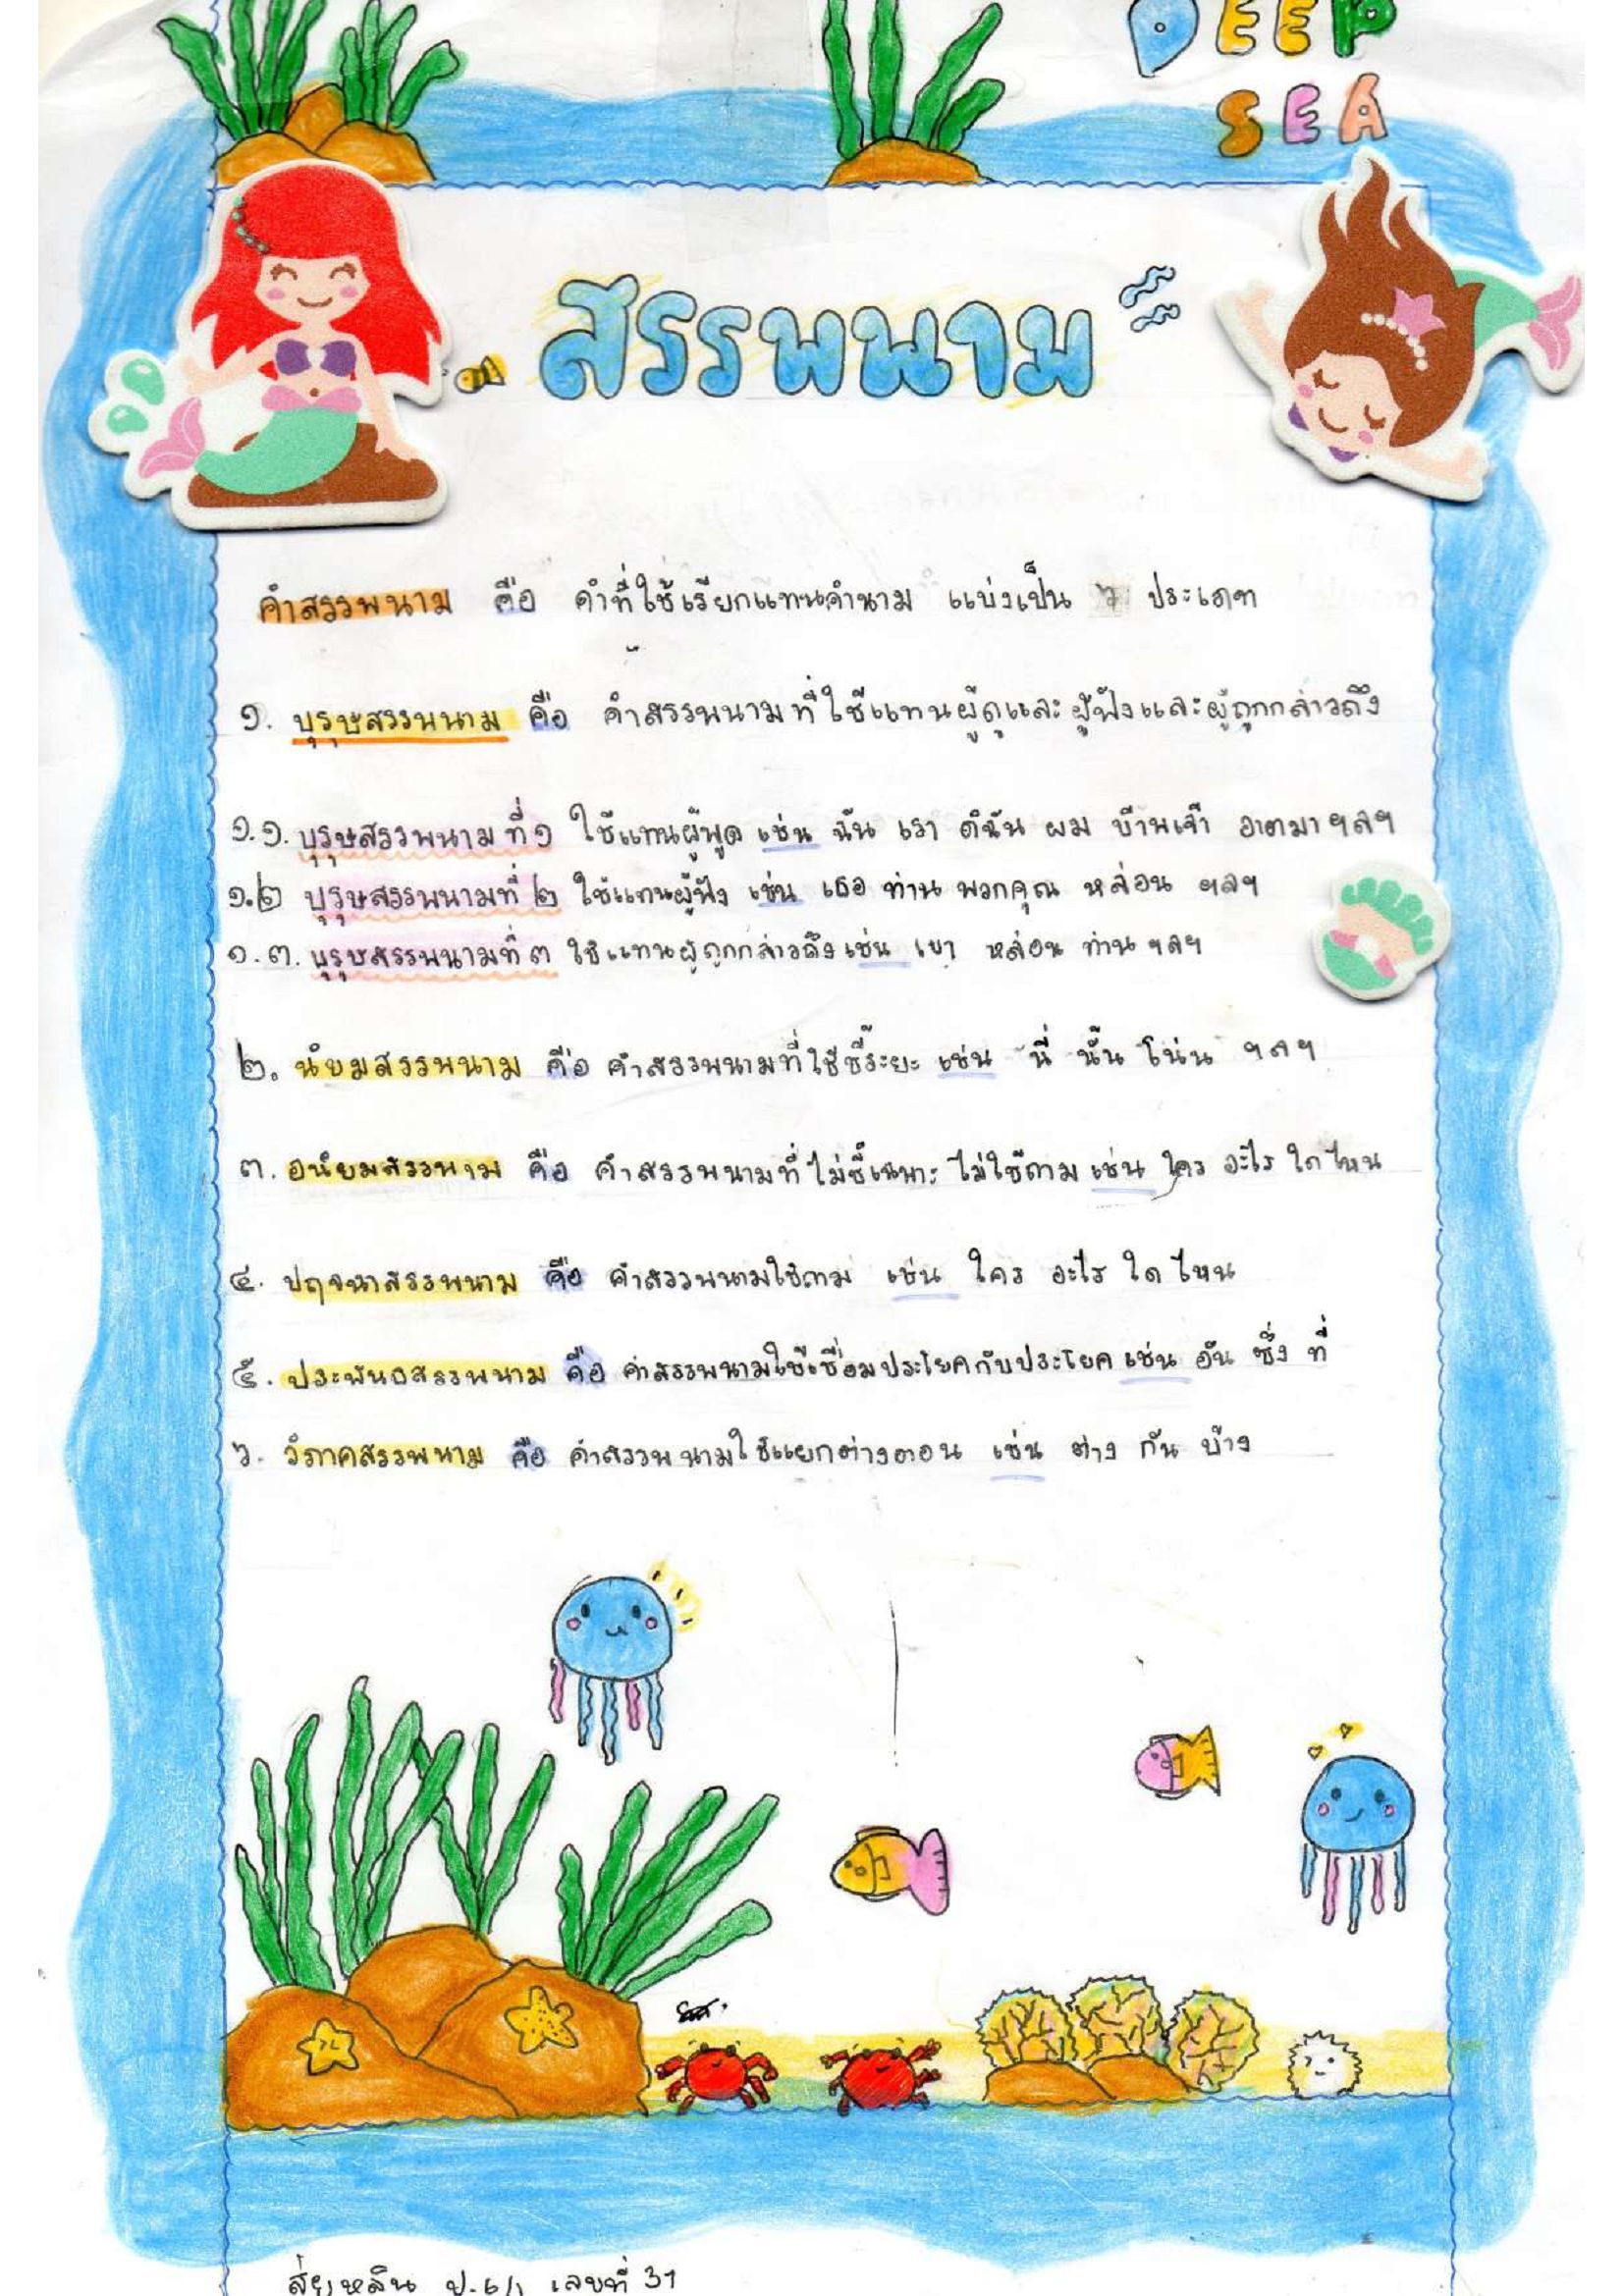 DEEP
SEA
สรรพนาม
คำสรรพนาม คือ คำที่ใช้เรียกแทนคำนาม แบ่งเป็น ๖ ประเภท
๑. บุรุษสรรพนาม คือ คำสรรพนามที่ใช้แทนผู้ดูและผู้ฟังและผู้ถูกกล่าวถึง
๑.๑. บุรุษสรรพนามที่๑ ใช้แทนผู้พูด เช่น ฉัน เรา ดิฉัน ผม ข้าพเจ้า อาตมา ฯลฯ
๑.๒ บุรุษสรรพนามที่ ๒ ใช้แทนผู้ฟัง เช่น เธอ ท่าน พวกคุณ หล่อน ฯลฯ
๑.๓. บุรุษสรรพนามที่ ๓ ใช้แทนผู้ถูกกล่าวถึง เช่น เขา หล่อน ท่าน ฯลฯ
๒. นิยมสรรพนาม คือ คำสรรพนามที่ใช้ชี้ระยะ เช่น นี่ นั้น โน่น ฯลฯ
๓. อนิยมสรรพนาม คือ คำสรรพนามที่ไม่ชี้เฉพาะ ไม่ใช้ถาม เช่น ใคร อะไร ใด ไหน
๔. ปฤจฉาสรรพนาม คือ คำสรรพนามใช้ถาม เช่น ใคร อะไร ใด ไหน
๕. ประพันธสรรพนาม คือ คำสรรพนามใช้เชื่อมประโยคกับประโยค เช่น อัน ซึ่ง ที่
๖. วิภาคสรรพนาม คือ คำสรรพนามใช้แยกต่างตอน เช่น ต่าง กัน บ้าง
ป.๖/๑ เลขที่ 31